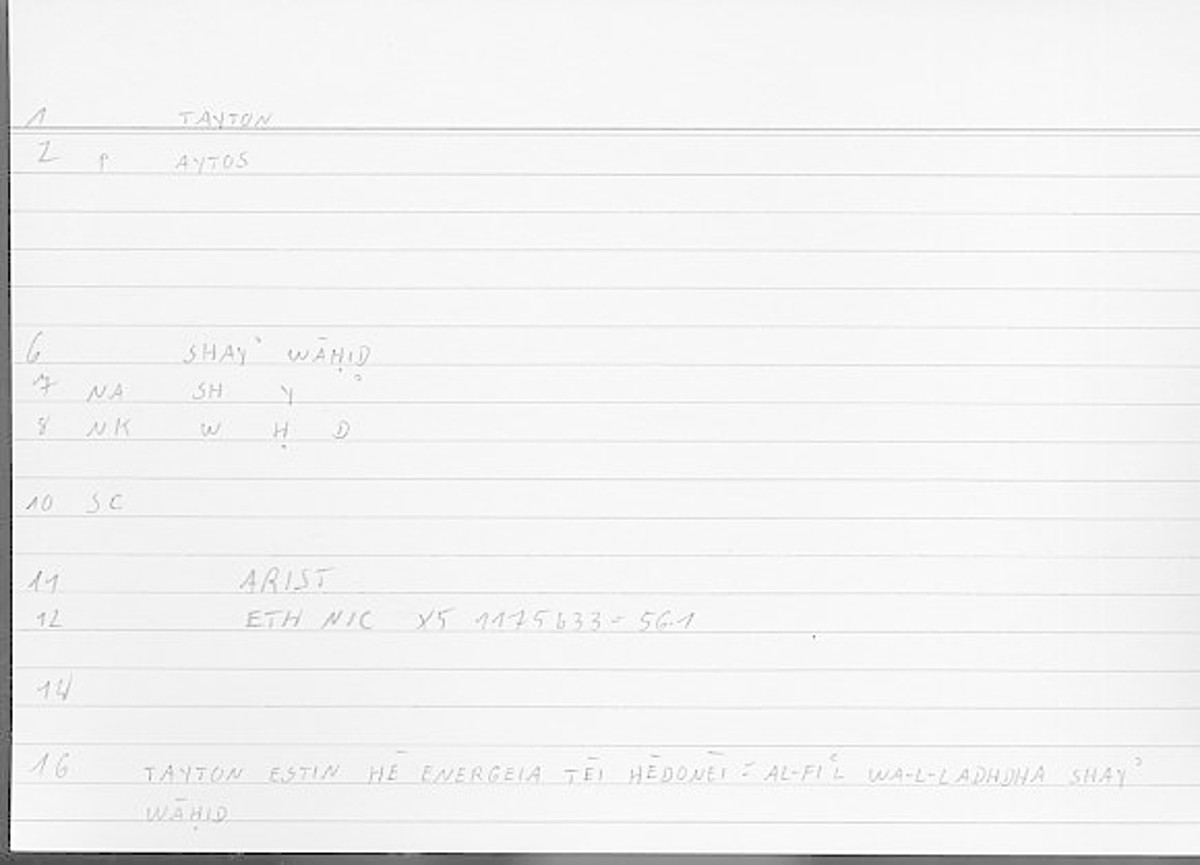 1 TAYTON
2 P AYTOS
6 SHAYʾ WĀḤID
7 NA SH Y ʾ
8 NK W Ḥ D
10 SC
11 ARIST
12 ETH NIC X5 1175b33 = 561
14
16 TAYTON ESTIN HĒ ENERGEIA TĒI HĒDONĒI = AL-FIʿL WA-L-LADHDHA SHAYʾ
WĀḤID